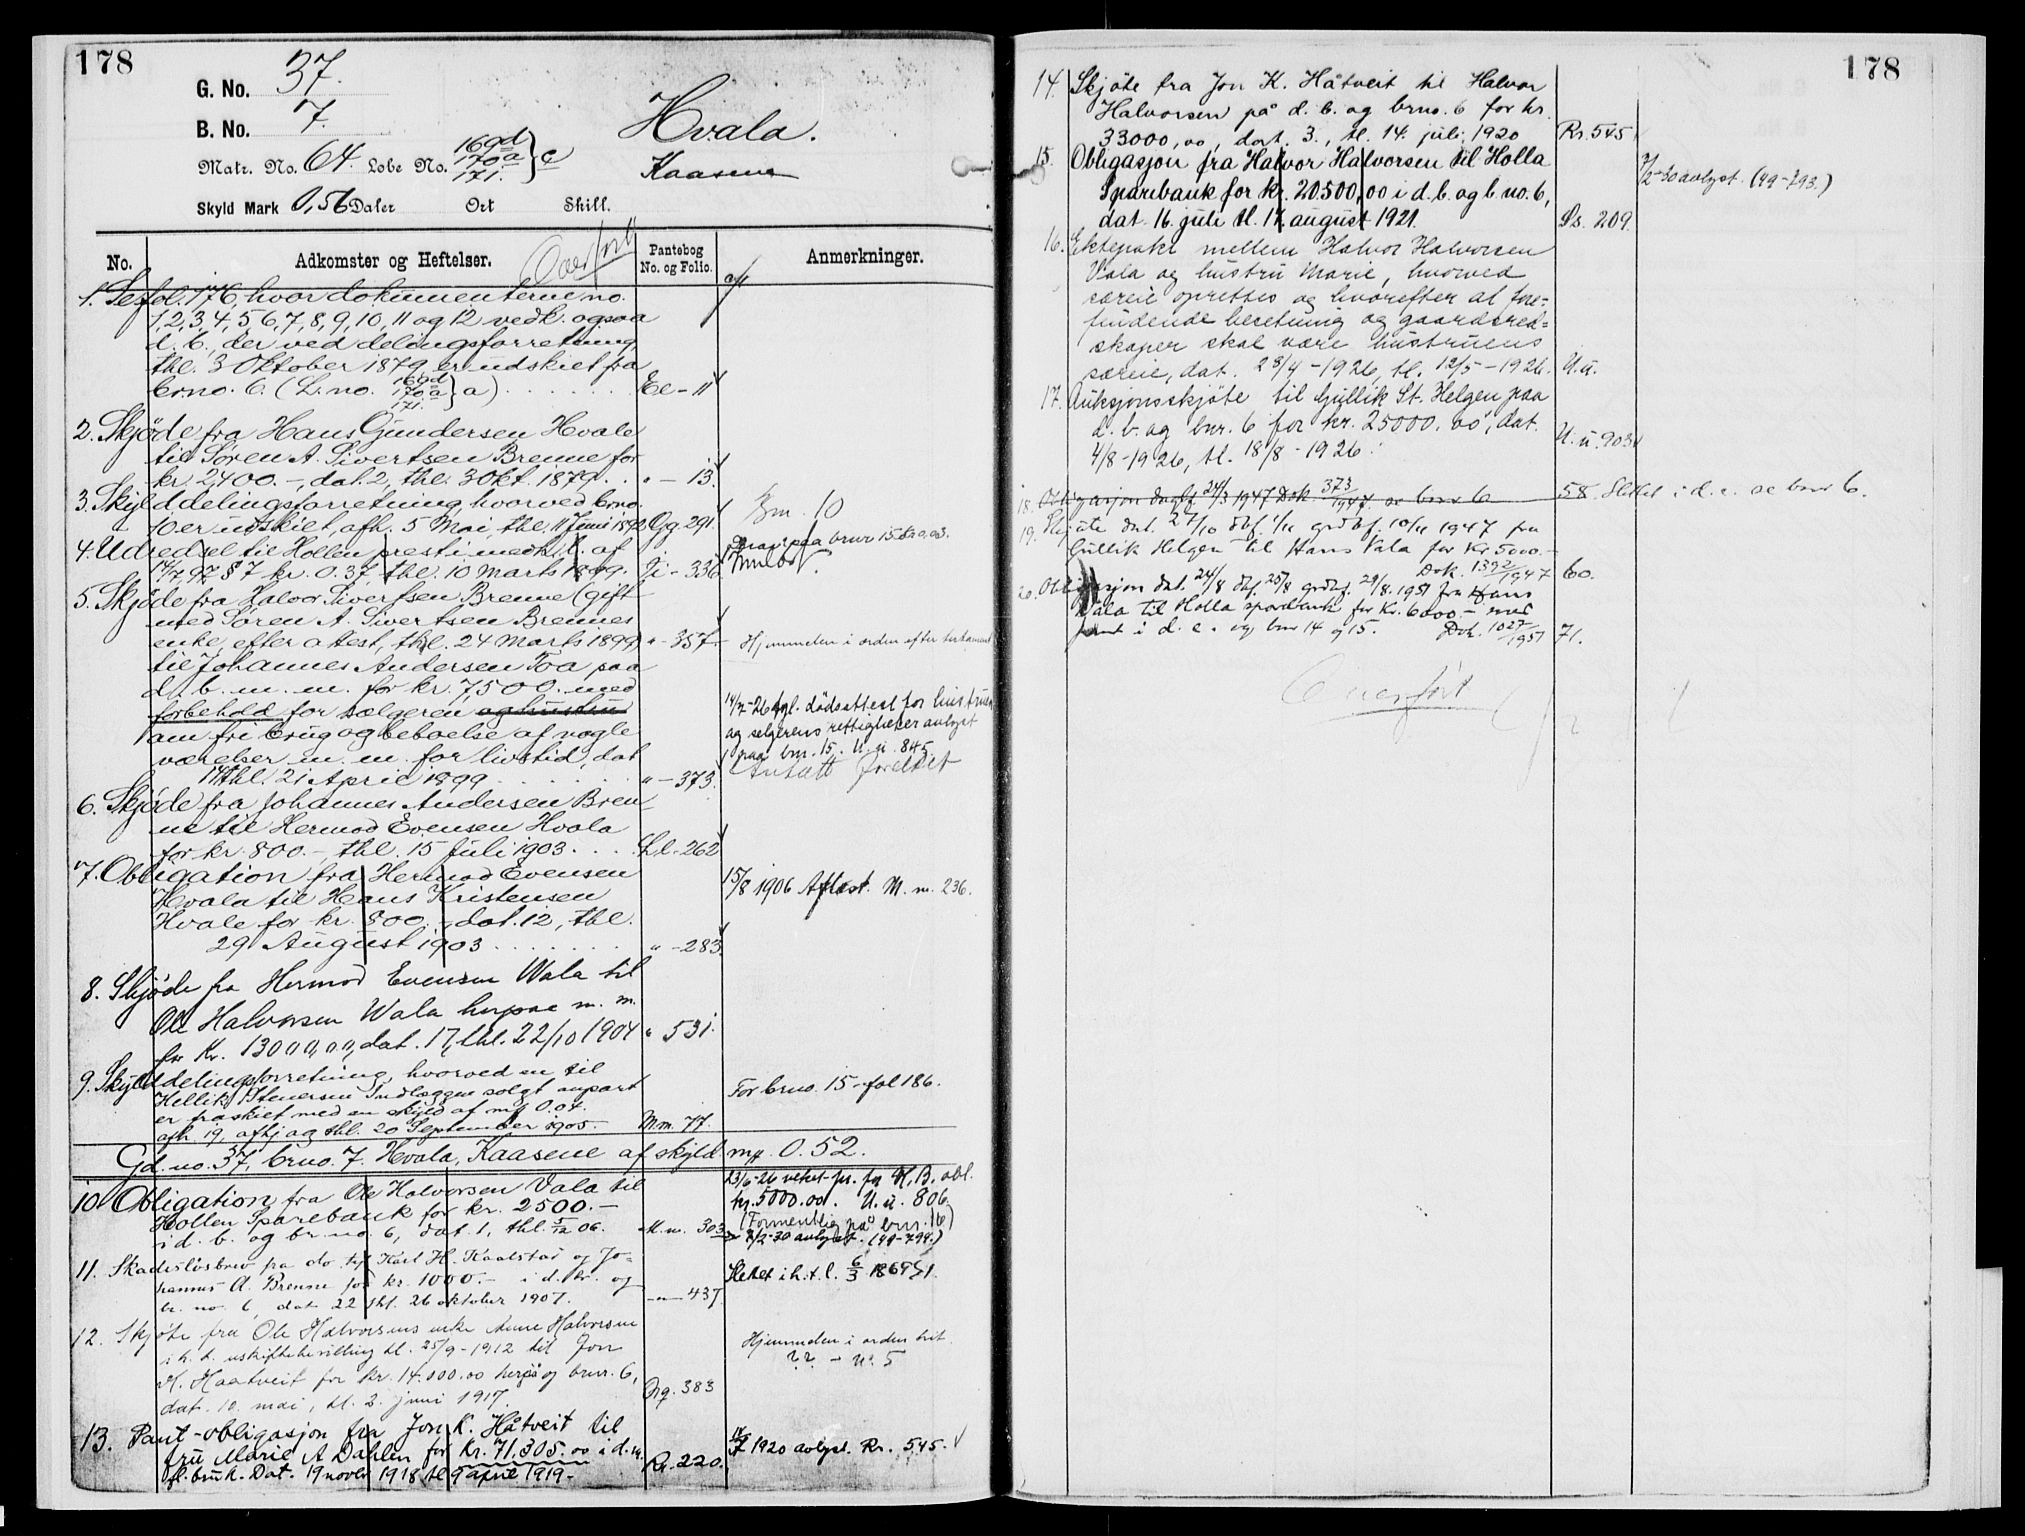 178
G. No. 37.
B. No. 7.
Matr. No. 64 Løbe No. 169d 170a 171. } c
Hvala.
Kaasene
Skyld Mark 0,56 Daler Ort Skill.
No. Adkomster og Heftelser. Overført Pantebog No. og Folio. Anmerkninger.
1. Se fol. 176, hvor dokumenterne no.
1, 2, 3, 4, 5, 6, 7, 8, 9, 10, 11 og 12 vedk. ogsaa
d. b., der ved delingsforretning,
thl. 3 Oktober 1879, er udskiet fra
brno. 6. (L. no. 169d 170a 171. } a) . . . . . . . Ee - 11
2. Skjøde fra Hans Gundersen Hvale
til Søren A. Sivertsen Brenne for
kr. 2400.-, dat. 2, thl. 3 Okt. 1879. . . " - 13.
3. Skylddelingsforretning, hvorved brno.
10 er udskiet, afh. 5 Mai, thl. 11 Juni 1892 Gg. 291. Brn. 10
4. Udredsel til Hollen prestimedkl. af
14/7 92 § 7 kr. 0.37, thl. 10 Marts 1899. Ii - 336.
5. Skjøde fra Halvor Sivertsen Brenne (gift
med Søren A. Sivertsen Brennes
enke, efter atest, thl. 24 Marts 1899) " - 357 Hjemmelen i orden efter testament
til Johannes Andersen Toa paa
d. b. m. m. for kr. 7,500. med
forbehold for sælgeren og hustru
om fri brug og beboelse af nogle
værelser m. m. for livstid, dat
14, thl. 21 April 1899 . . . . . . " - 373.
14/7-26 tgl. dødsattest for hustruen
og selgerens rettigheter avlyst
paa brn. 15. U. ü. 845.
Antatt foreldet
6. Skjøde fra Johannes Andersen Bren
ne til Hermod Evensen Hvala
for kr. 800.-, thl. 15 Juli 1903. . . . Ll. 262
7. Obligation fra Hermod Evensen
Hvala til Hans Kristensen
Hvale for kr. 800.-, dat. 12, thl.
29 August 1903 . . . . . . . " - 283.
15/8 1906 Aflæst. M. m. 236.
8. Skjøde fra Hermod Evensen Wala til
Ole Halvorsen Wala herpaa m. m.
for Kr. 13000,00, dat. 17, thl. 22/10 1904 " 531.
9. Skylddelingsforretning, hvorved en til
Hellik Stenersen Indlæggen solgt anpart
er fraskiet med en skyld af mk 0.04.
afh. 19, afhj og thl. 20 September 1905.- Mm. 77.
For brno. 15 - fol 186.
Gd. no. 37, brno. 7. Hvala, Kaasene af skyld mk. 0.52.
10 Obligation fra Ole Halvorsen Vala til
Hollen Sparebank for kr. 2500.-
i d. b. og br. no 6, dat. 1, thl. 5/12 06. M. m. 303
23/6-26 veket pr. for H. B. obl.
kr. 5000.00. U. ü. 806.
(Formentlig på brn. 16)
7/2-30 avlyst. (49-794.)
11. Skadesløsbrev fra do til Karl H. Kaalstad og Jo-
hannes A. Brenne for kr. 1000.- i d. br. og
br. no. 6, dat 22 thl. 26 oktober 1907. -"- 437
Slettet i h. t. l. 6/3 1869 § 1.
12. Skjøte fra Ole Halvorsens enke Anne Halvorsen
i h. t. uskiftebevilling tl. 25/9-1912 til Jon
K. Haatveit for kr. 14.000.00 herpå og brnr. 6,
dat. 10. mai, tl. 2. juni 1917. Qq. 383
13. Pant-obligasjon fra Jon K. Håtveit til
fru Marie A Dahlen for Kr. 71.305.00 i d. m.
fl. bruk. Dat. 19 novbr 1918 tl 9 april 1919. Rr. 220.
1920 avlyst. Rr. 545.
178
14. Skjøte fra Jon K. Håtveit til Halvor
Halvorsen på d. b. og brno. 6 for kr.
33000,00, dat. 3., tl. 14. juli 1920 Rr. 545
15. Obligasjon fra Halvor Halvorsen til Holla
Sparebank for kr. 20500,00 i d. b. og b. no. 6,
dat. 16. juli tl. 17. august 1921. Ss. 209.
7/2-30 avlyst. (49-793.)
16. Ektepakt mellem Halvor Halvorsen
Vala og hustru Marie, hvorved
særeie oprettes og hvorefter al fore-
findende besetning og gaardsred-
skaper skal være hustruens
særeie, dat. 28/4-1926, tl. 12/5-1926. U. ü.
17. Auksjonsskjøte til Gullik St. Helgen paa
d. b. og bnr. 6 for kr. 25000.00, dat.
4/8-1926, tl. 18/8-1926. U. ü. 903
18. Obligasjon dagbf 24/3 1947 Dok. 373/1947. 58. Slettet i d. e. og bnr 6.
19. Skjøte dat. 27/10 dbf. 1/11 grdbf. 10/11 1947 fra
Gullik Helgen til Hans Vala for Kr 5000.-
Dok. 1392/1947 60.
20. Obligasjon dat. 24/8 dbf. 25/8 grdbf. 29/8. 1951 fra Hans
Vala til Holla sparebank for Kr. 6000.- med
pant i d. e. og bnr 14 og 15. Dok. 1027/1951 71.
Overført